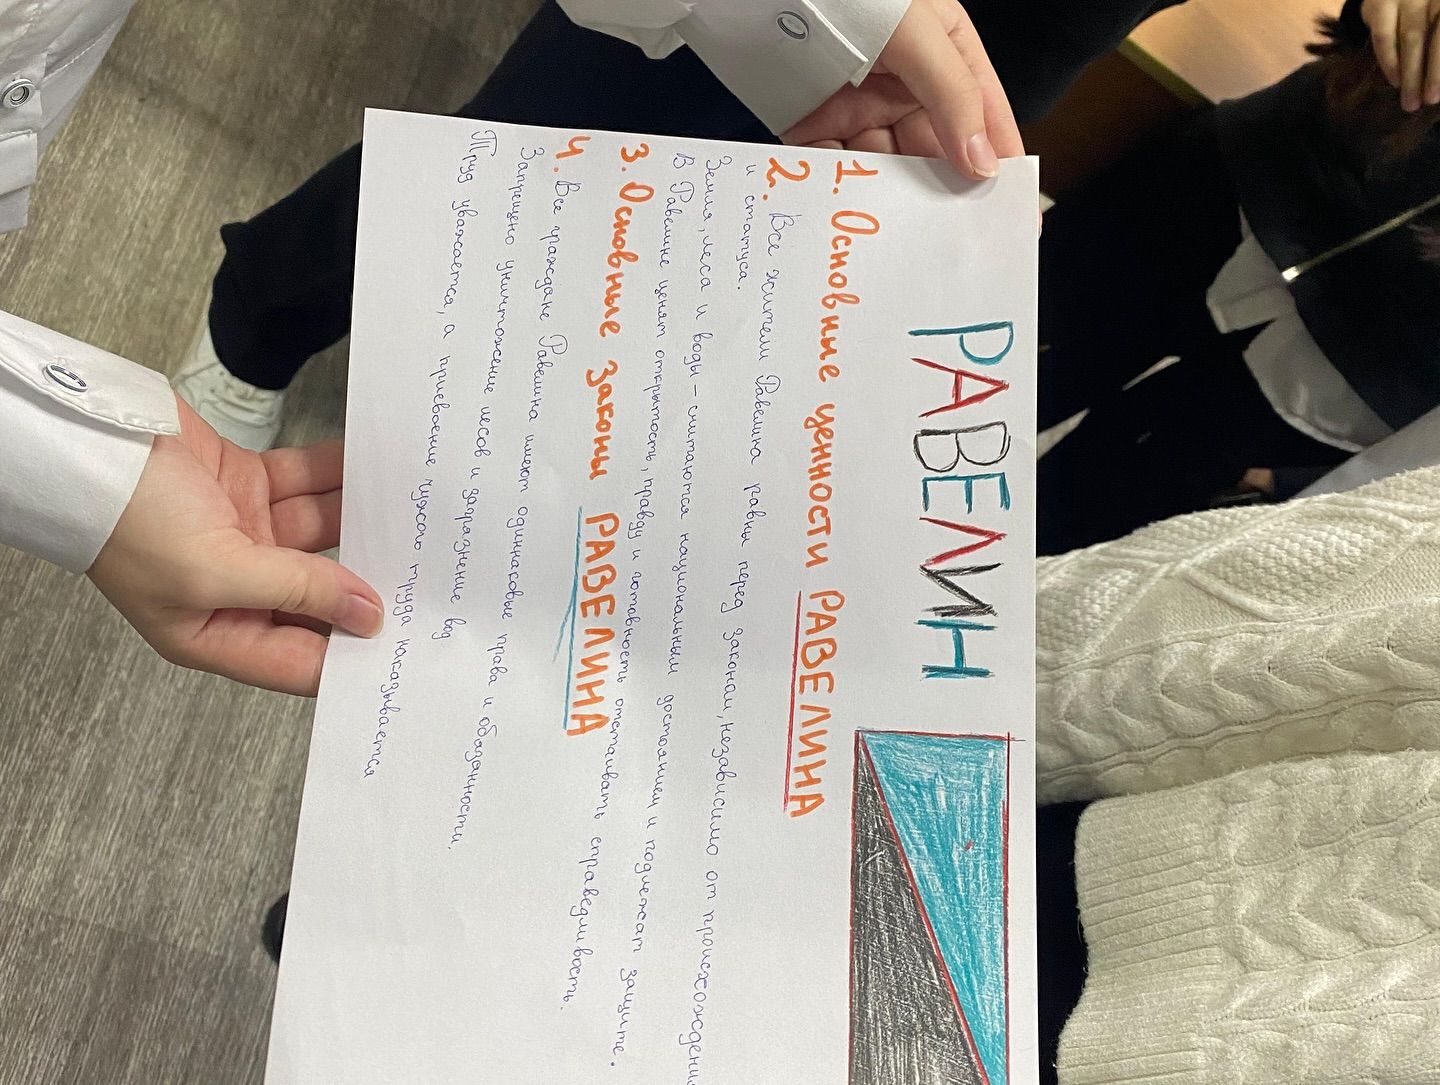 РАВЕЛИН
1. Основные ценности РАВЕЛИНА
2. Все жители Равелина равны перед законом, независимо от происхождения
и статуса.
Земля, леса и воды – считаются национальным достоянием и подлежат защите.
В Равелине ценят открытость, правду и готовность отстаивать справедливость.
3. Основные законы РАВЕЛИНА
4. Все граждане Равелина имеют одинаковые права и обязанности.
Запрещено уничтожение лесов и загрязнение вод
Труд уважается, а присвоение чужого труда наказывается